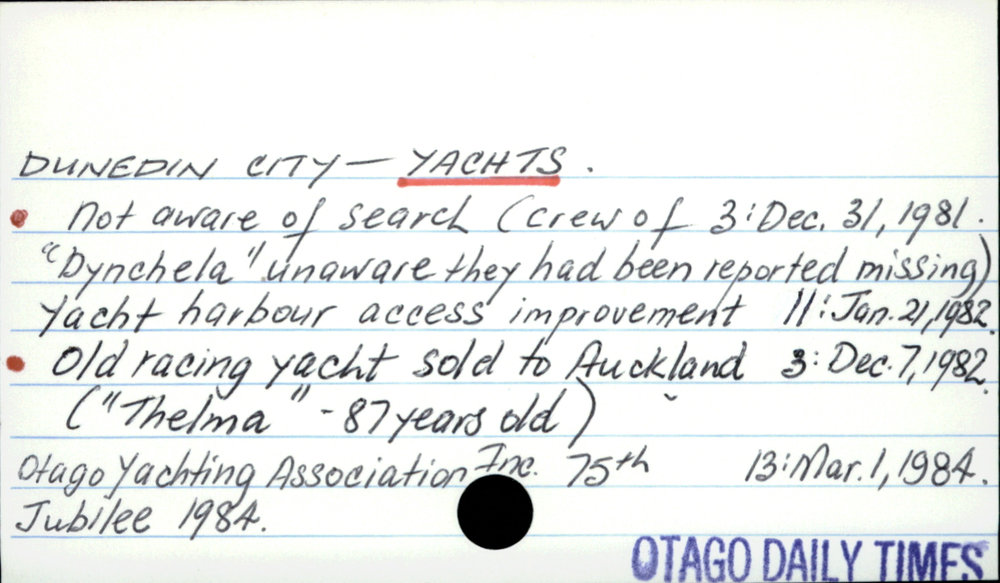 DUNEDIN CITY - YACHTS.
not aware of search (crew of 3: Dec. 31, 1981.
"Dynchela" unaware they had been reported missing)
Yacht harbour access improvement 11: Jan. 21, 1982.
Old racing yacht sold to Auckland 3: Dec. 7, 1982.
("Thelma" - 87 years old)
Otago Yachting Association Inc. 75th 13: Mar. 1, 1984.
Jubilee 1984.
OTAGO DAILY TIMES